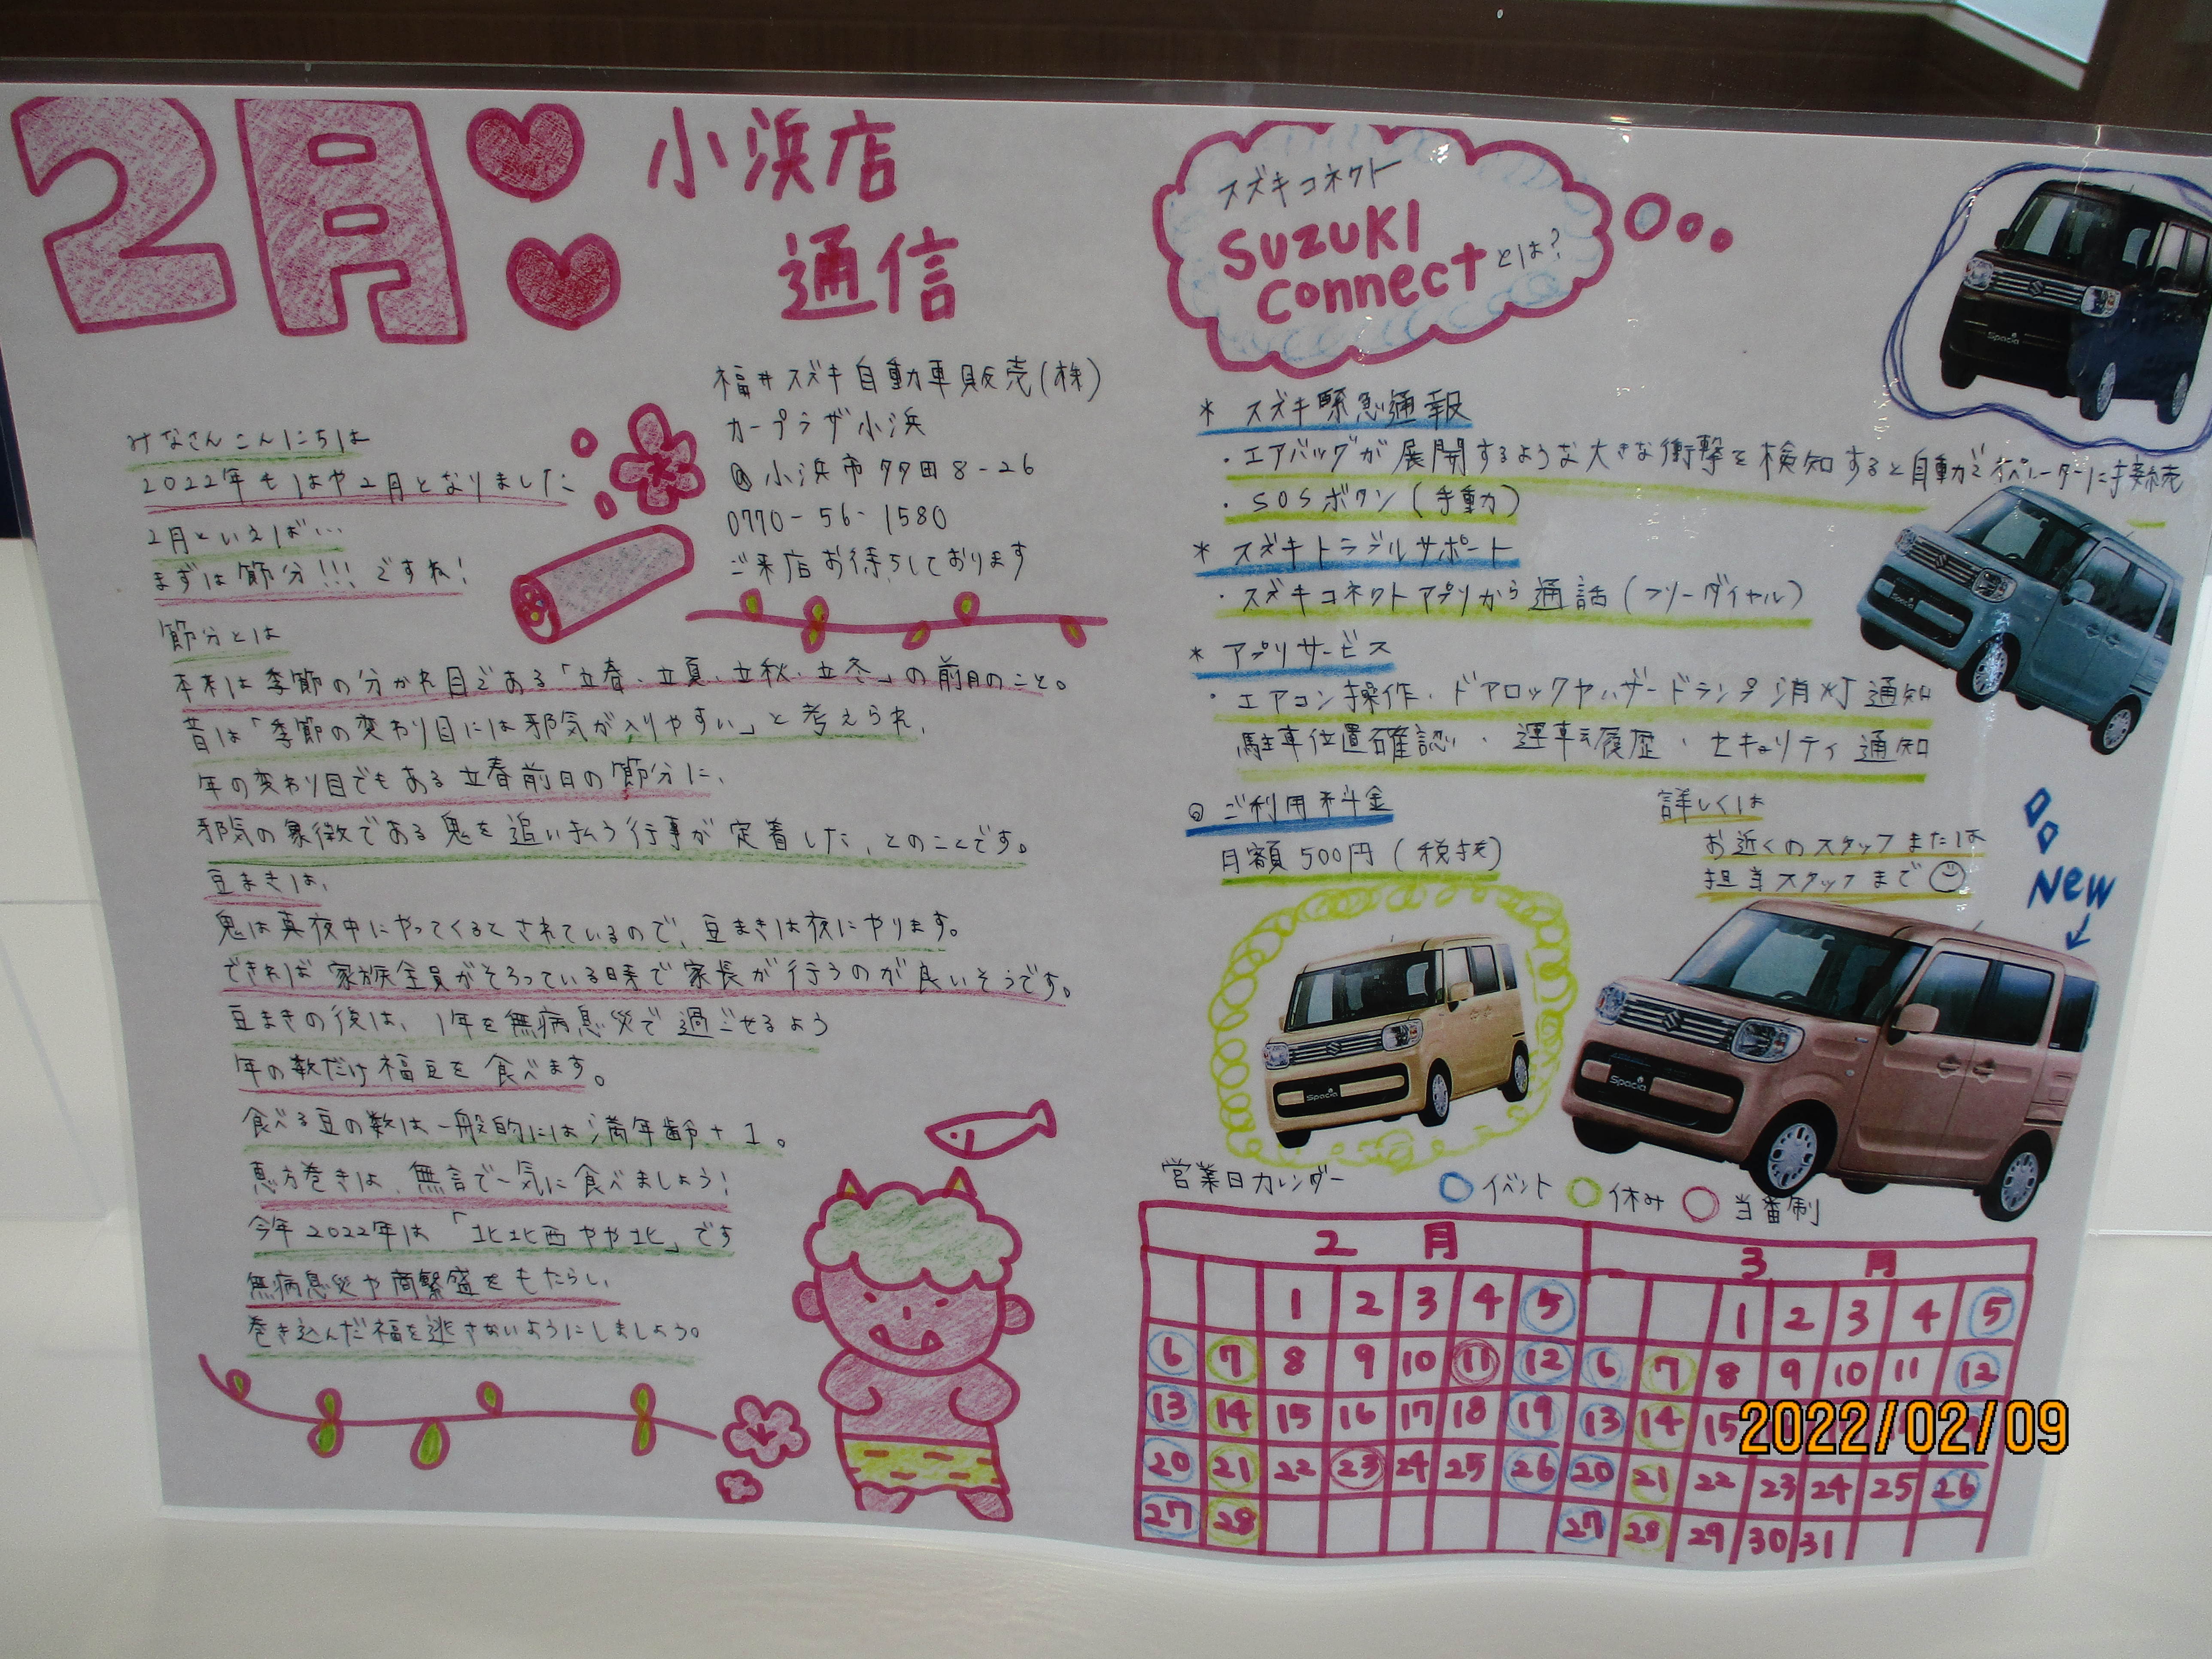 2月
小浜店
通信
福井スズキ自動車販売(株)
カープラザ小浜
小浜市多田8-26
0770-56-1580
ご来店お待ちしております
みなさんこんにちは
2022年もはや2月となりました
2月といえば…
まずは節分!!!ですね!
節分とは
本来は季節の分かれ目である「立春、立夏、立秋、立冬」の前日のこと。
昔は「季節の変わり目には邪気が入りやすい」と考えられ、
年の変わり目でもある立春前日の節分に、
邪気の象徴である鬼を追い払う行事が定着した、とのことです。
豆まきは、
鬼は真夜中にやってくるとされているので、豆まきは夜にやります。
できれば家族全員がそろっている時で家長が行うのが良いそうです。
豆まきの後は、1年を無病息災で過ごせるよう
年の数だけ福豆を食べます。
食べる豆の数は一般的には満年齢+1。
恵方巻きは、無言で一気に食べましょう!
今年2022年は「北北西やや北」です
無病息災や商繁盛をもたらし、
巻き込んだ福を逃さないようにしましょう。
スズキコネクト
SUZUKI
connectとは?
* スズキ緊急通報
・エアバッグが展開するような大きな衝撃を検知すると自動でオペレーターに接続
・SOSボタン(手動)
* スズキトラブルサポート
・スズキコネクトアプリから通話(フリーダイヤル)
* アプリサービス
・エアコン操作・ドアロックやハザードランプ消灯通知
駐車位置確認・運転履歴・セキュリティ通知
◎ご利用料金
月額500円(税抜)
詳しくは
お近くのスタッフまたは
担当スタッフまで
New
Spacia
Spacia
Spacia
Spacia
営業日カレンダー
イベント 休み 当番制
2月 3月
1 2 3 4 5 1 2 3 4 5
6 7 8 9 10 11 12 6 7 8 9 10 11 12
13 14 15 16 17 18 19 13 14 15
20 21 22 23 24 25 26 20 21 22 23 24 25 26
27 28 27 28 29 30 31
2022/02/09